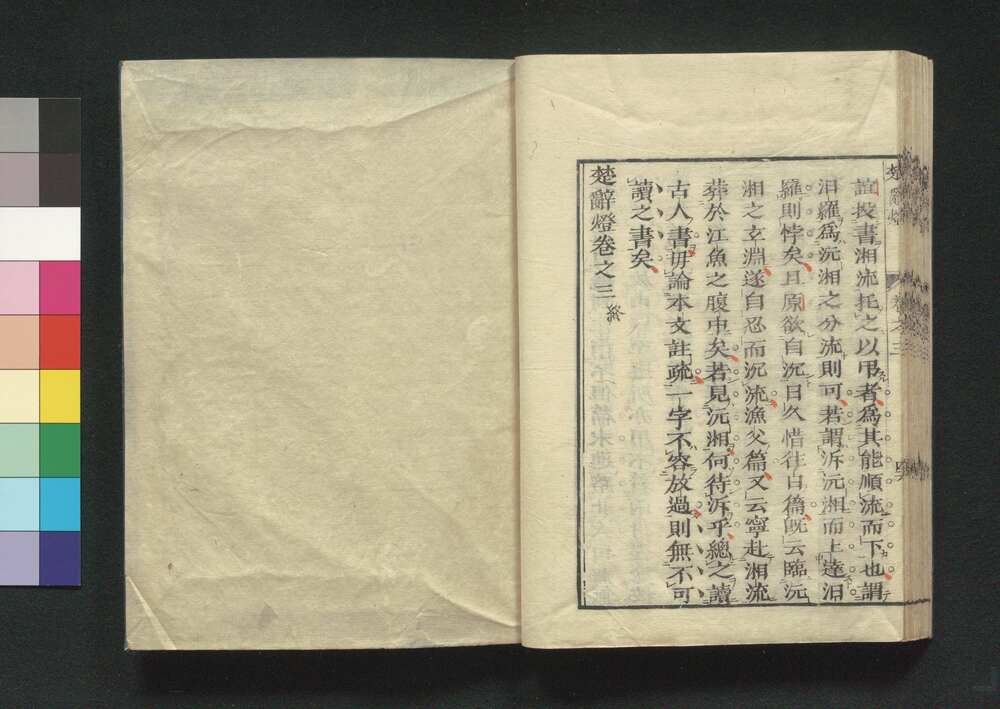 誼投書湘流托之以弔者爲其能順流而下也謂
汨羅爲沅湘之分流則可若謂泝沅湘而上達汨
羅則悖矣且原欲自沉日久惜往日篇旣云臨沅
湘之玄淵遂自忍而沉流漁父篇又云寧赴湘流
葬於江魚之腹中矣若見沅湘何待泝乎總之讀
古人書毋論本文註疏一字不容放過則無不可
讀之書矣
楚辭燈卷之三終